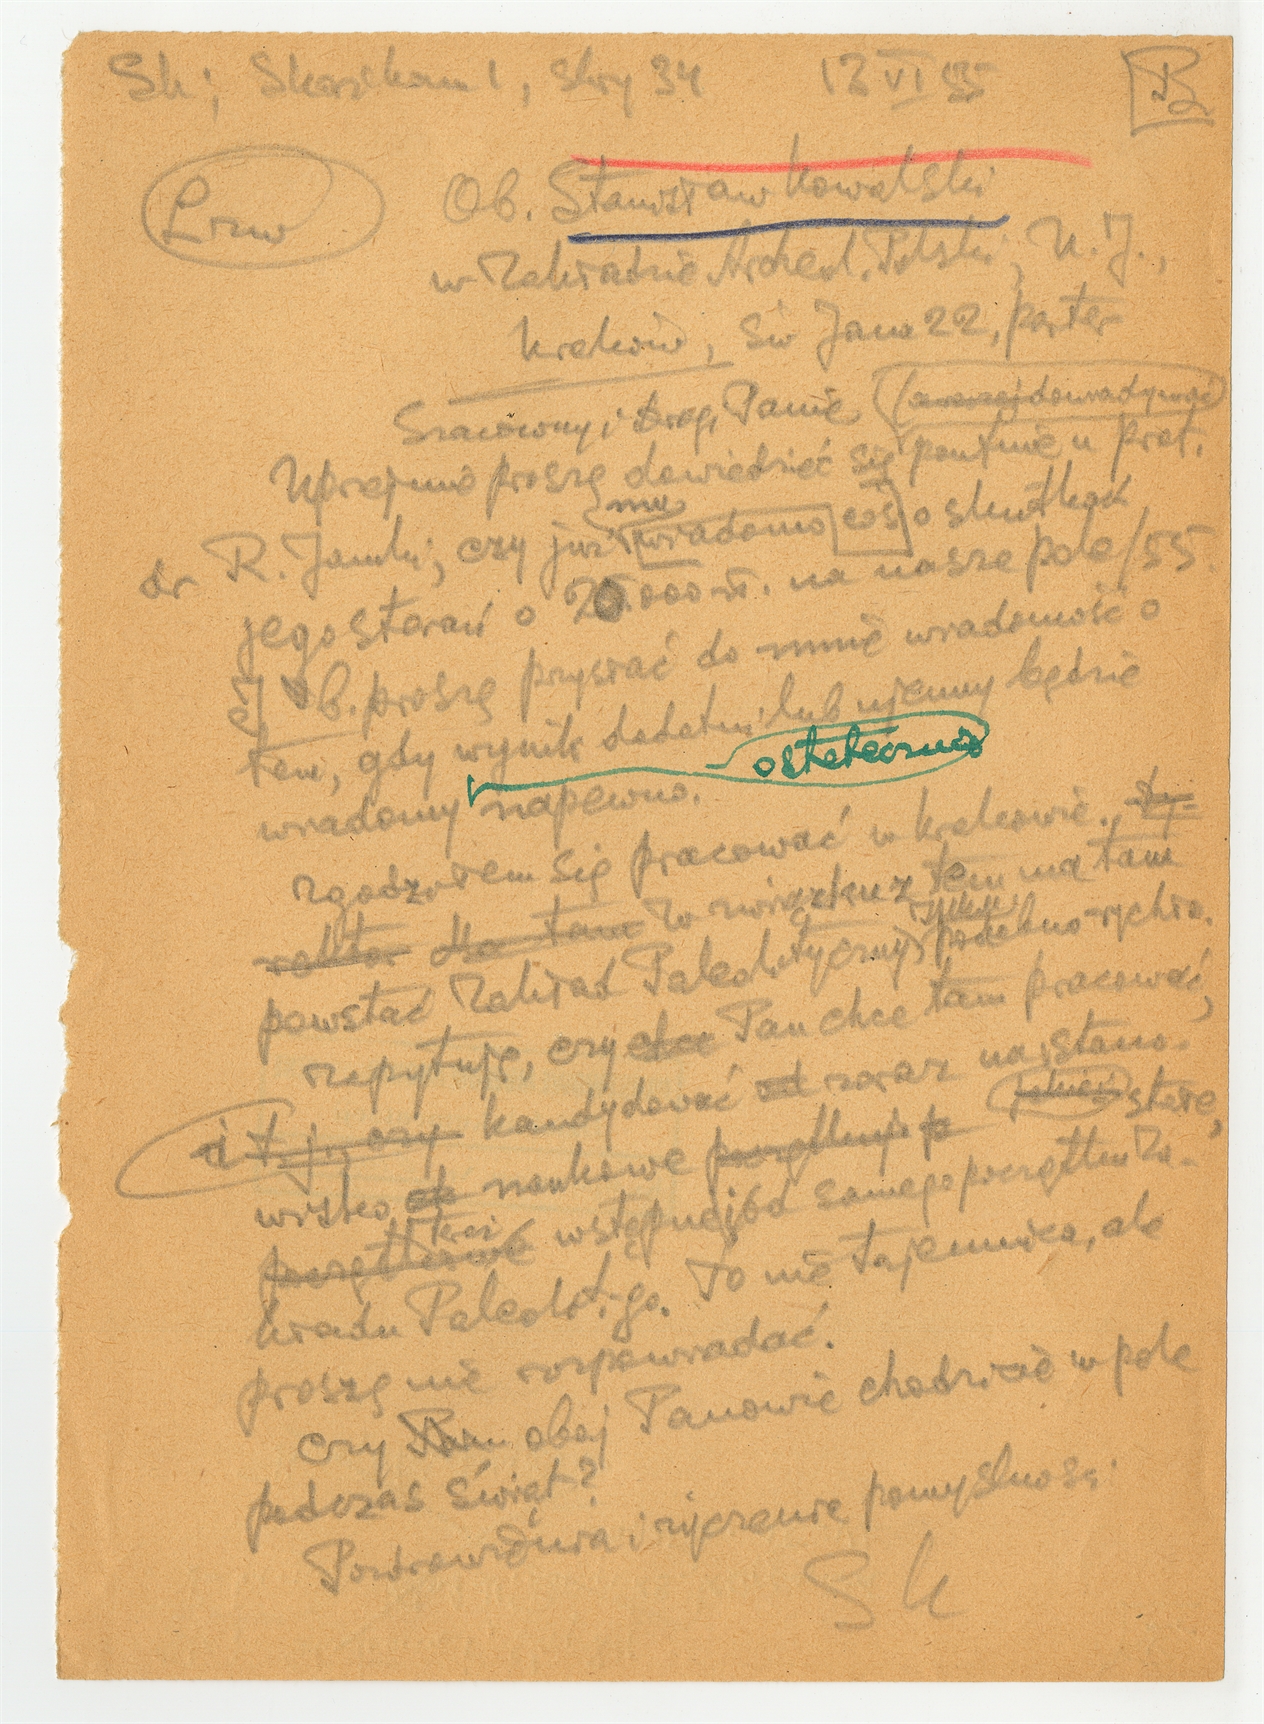 Sk; Skarzkam 1, skry 34 12 VI 55 B
Lrw
Ob. Stanisław Kowalski
w Zakładzie Archeol. Polski, U. J.,
Kraków, św Jana 22, parter
Szanowny i Drogi Panie,
Uprzejmie proszę dowiedzieć się poufnie u prof.
dr R. Jamki, czy już mu wiadomo coś o skutkach
jego starań o 20.000 zł. na nasze pole/55.
I b. proszę przysłać do mnie wiadomość o
tem, gdy wynik dodatni lub ujemny będzie
ostatecznie
wiadomy napewno.
Zgodziłem się pracować w Krakowie.
W związku z tem ma tam
powstać Zakład Paleolityczny, podobno rychło.
Zapytuję, czy chce Pan chce tam pracować,
i t. j. czy kandydować zaraz na stano-
wisko naukowe stałe,
wstępnej od samego początku Za-
kładu Paleolit-go. To nie tajemnica, ale
proszę nie rozpowiadać.
Czy obaj Panowie chodzicie w pole
podczas świąt?
Pozdrowienia i życzenie pomyślności
SK